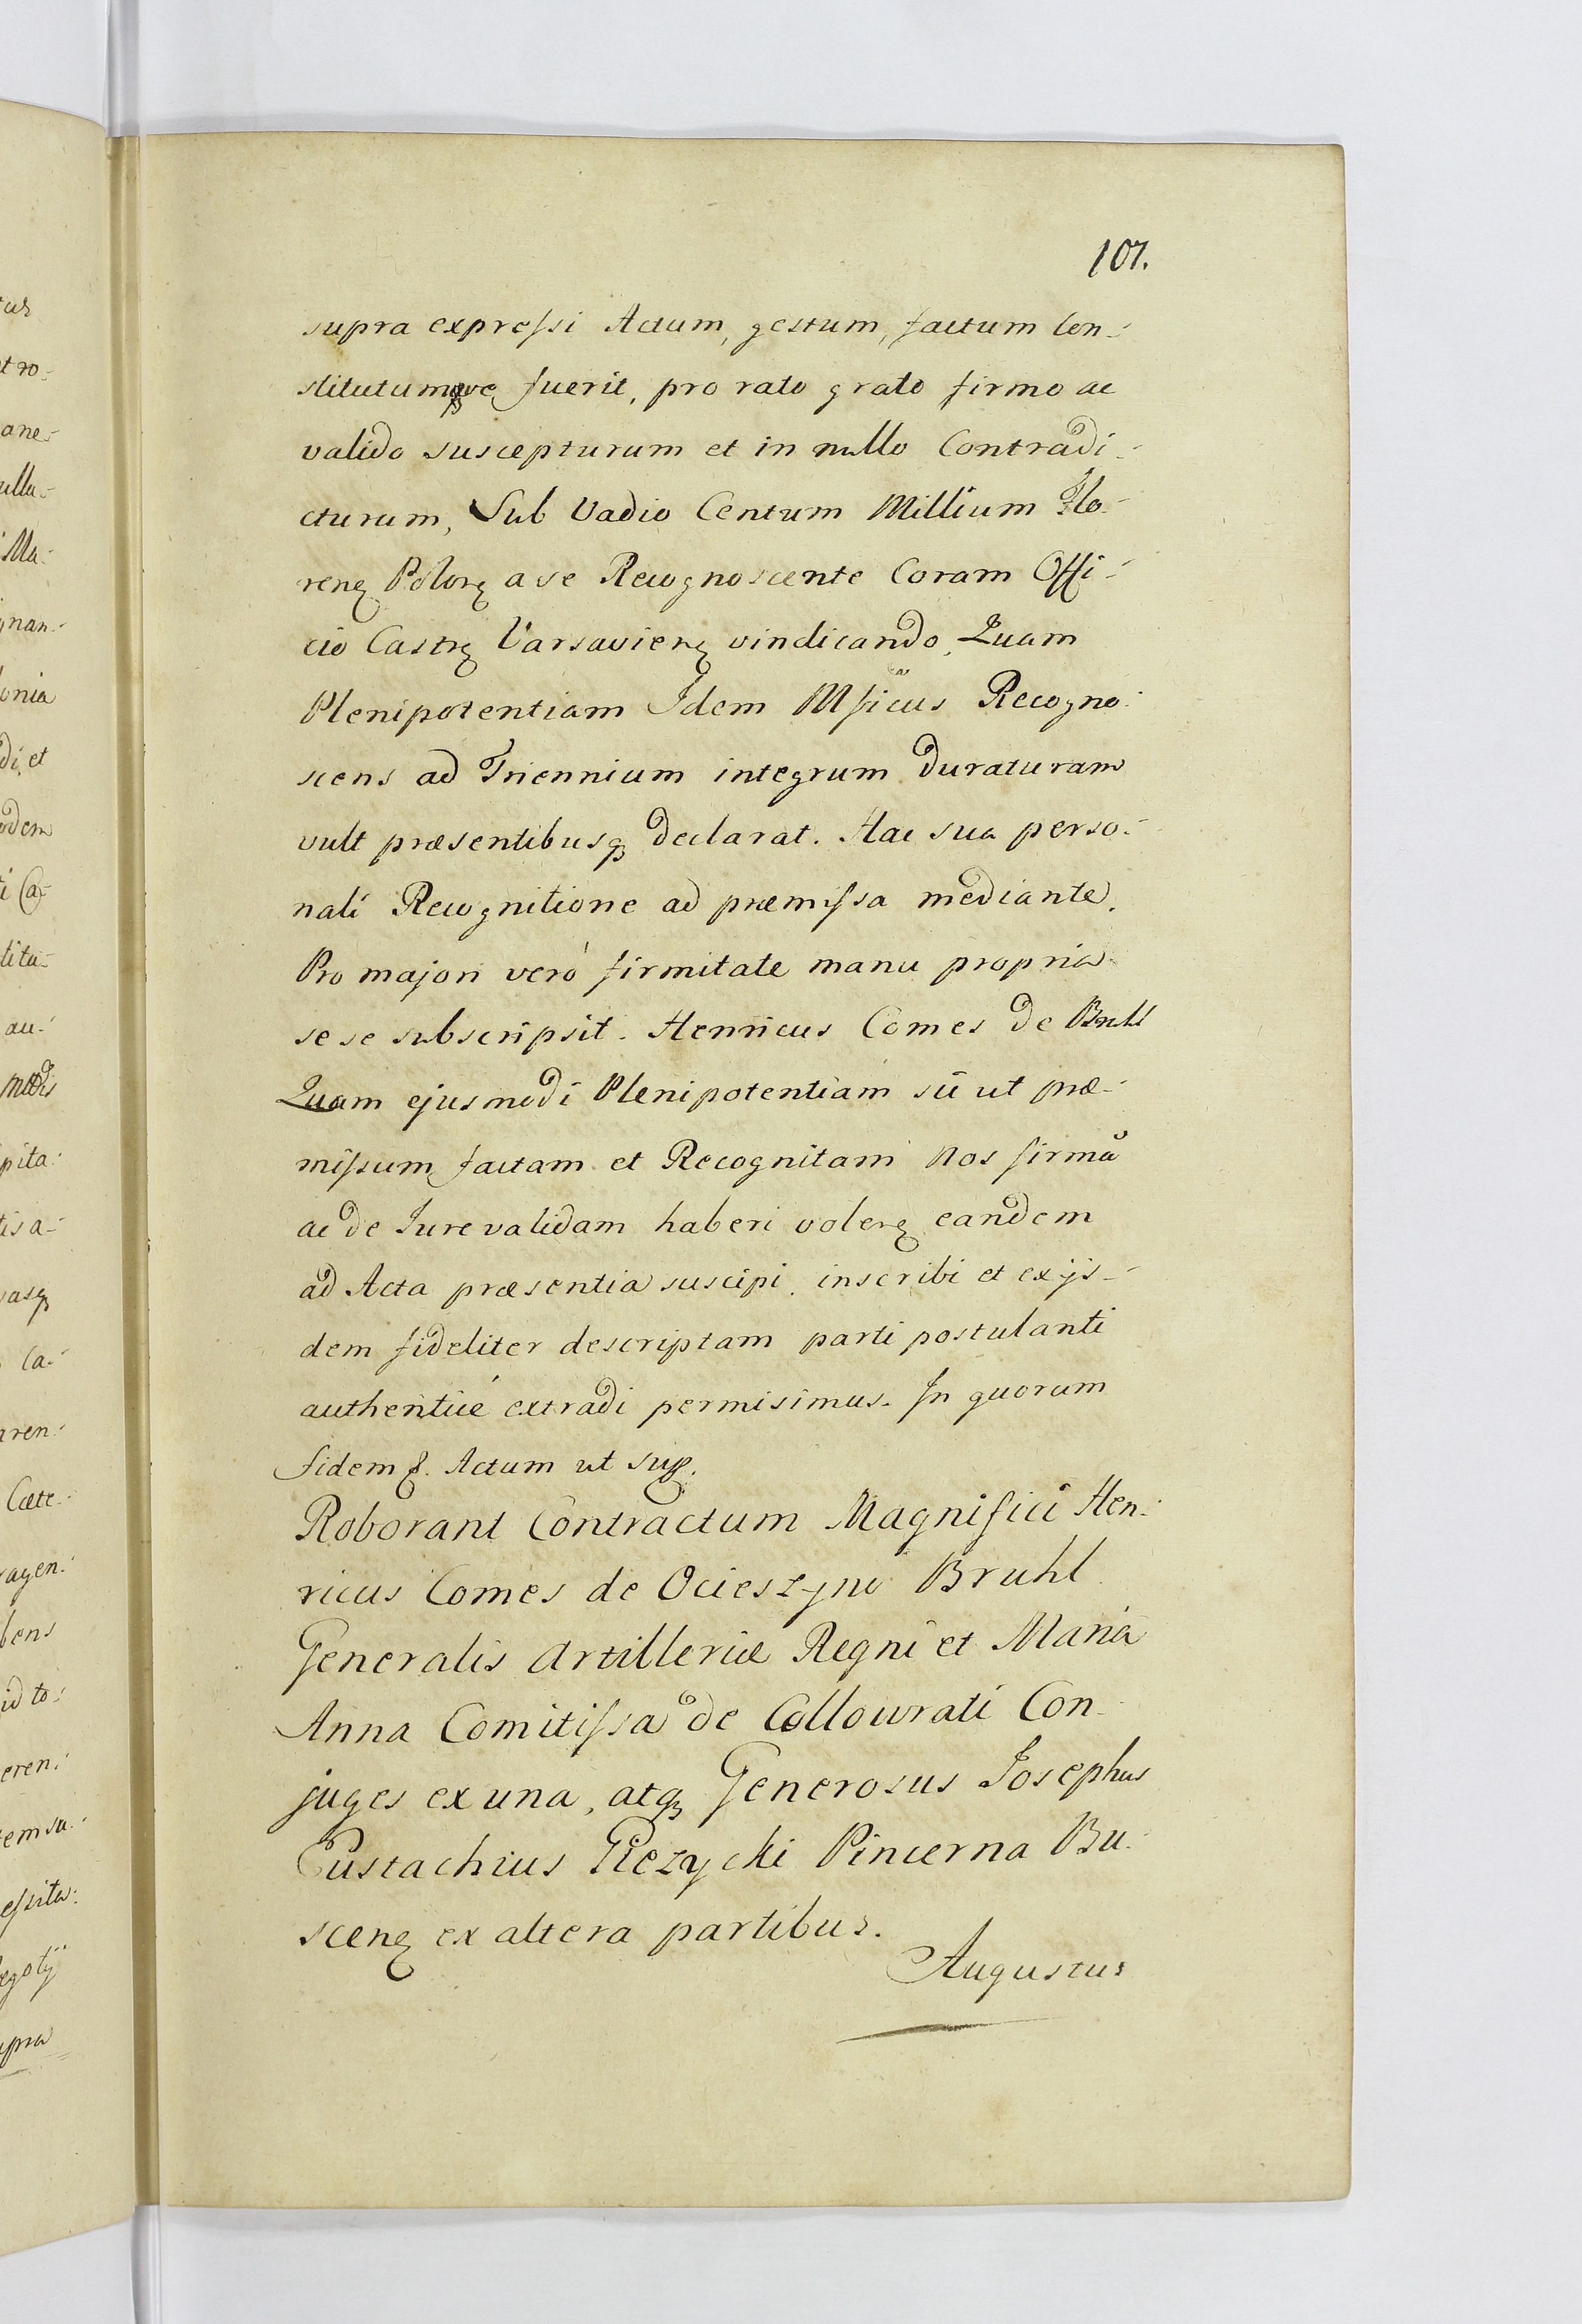 107.
supra expressi Actum, gestum, factum Con-
stitutumqve fuerit, pro rato grato firmo ac
valido suscepturum et in nullo Contradi-
cturum, Sub Vadio Centum Millium Flo-
renꝫ Polonꝫ a se Recognoscente Coram Offi-
cio Castrꝫ Varsavienꝫ vindicando, Quam
Plenipotentiam Idem Mficus Recogno-
scens ad Triennium integrum duraturam
vult præsentibusqꝫ declarat. Hac sua perso-
nali Recognitione ad præmissa mediante.
Pro majori verò firmitate manu propria
se se subscripsit. Henricus Comes de Bruhl
Quam ejusmodi Plenipotentiam sū ut præ-
missum factam et Recognitam Nos firmā
ac de Jure validam haberi volenꝫ eandem
ad Acta præsentia suscipi, inscribi et ex ijs-
dem fideliter descriptam parti postulanti
authenticé extradi permisimus. In quorum
fidem ꝫ. Actum ut sup.
Roborant Contractum Magnifici Hen-
ricus Comes de Ocieszyno Bruhl
Generalis Artilleriæ Regni et Maria
Anna Comitissa de Collowrati Con-
juges ex una, atqꝫ Generosus Josephus
Eustachius Piezycki Pincerna Bu-
scenꝫ ex altera partibus.
Augustus
us
ane-
ulla-
Ma-
gnan-
onia
di, et
odem
i Ca-
titu-
au-
pita-
tis a-
asqꝫ
Ca-
ren-
Cæte-
agen-
bens
id to-
eren-
em su-
essita-
egotij
upra